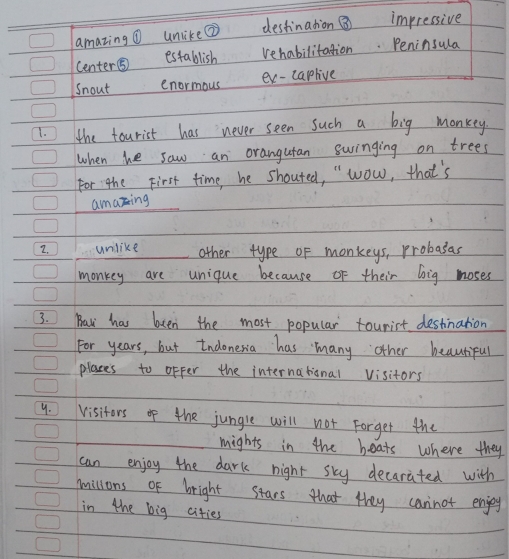 amazing ① unlike ② destination ③ impressive
center ⑤ establish rehabilitation . Peninsula
Snout enormous ex-captive
1. the tourist has never seen such a big monkey.
When he saw an orangutan swinging on trees
For the First time, he shouted, "wow, that's
amazing
2. unlike other type of monkeys, probasas
monkey are unique because of their big noses
3. Bali has been the most popular tourist destination
For years, but Indonesia has many other beautiful
places to offer the international visitors
4. Visitors of the jungle will not Forget the
mights in the boats where they
can enjoy the dark night sky decarated with
millons of bright stars that they cannot enjoy
in the big cities